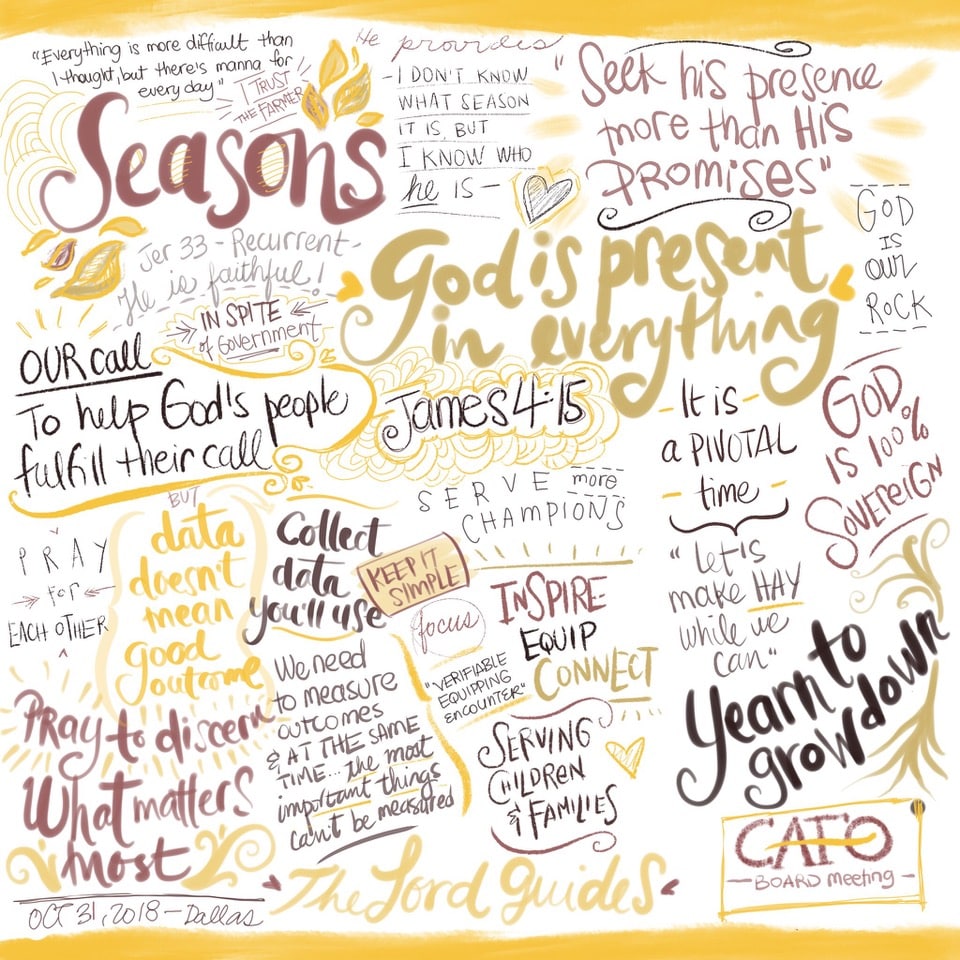 "Everything is more difficult than
I thought, but there's manna for
every day"
I TRUST
THE FARMER
Seasons
He provides
- I DON'T KNOW
WHAT SEASON
IT IS, BUT
I KNOW WHO
he IS -
"Seek his presence
more than HIS
PROMISES"
GOD
IS
our
ROCK
Jer 33 - Recurrent -
He is faithful!
IN SPITE
of Government
God is present
in everything
OUR call
To help God's people
fulfill their call
James 4:15
- It is -
a PIVOTAL
- time -
GOD
IS 100%
SOVEREIGN
SERVE more
CHAMPIONS
PRAY
for
EACH OTHER
BUT
data
doesn't
mean
good
outcome
Collect
data
you'll use
KEEP IT
SIMPLE
focus
"VERIFIABLE
EQUIPPING
ENCOUNTER"
INSPIRE
EQUIP
CONNECT
"let's
make HAY
while we
can"
Yearn to
grow down
Pray to discern
What matters
most
We need
to measure
outcomes
& AT THE SAME
TIME... the most
important things
can't be measured
SERVING
CHILDREN
& FAMILIES
The Lord Guides
CAFO
- BOARD meeting -
OCT 31, 2018 - Dallas